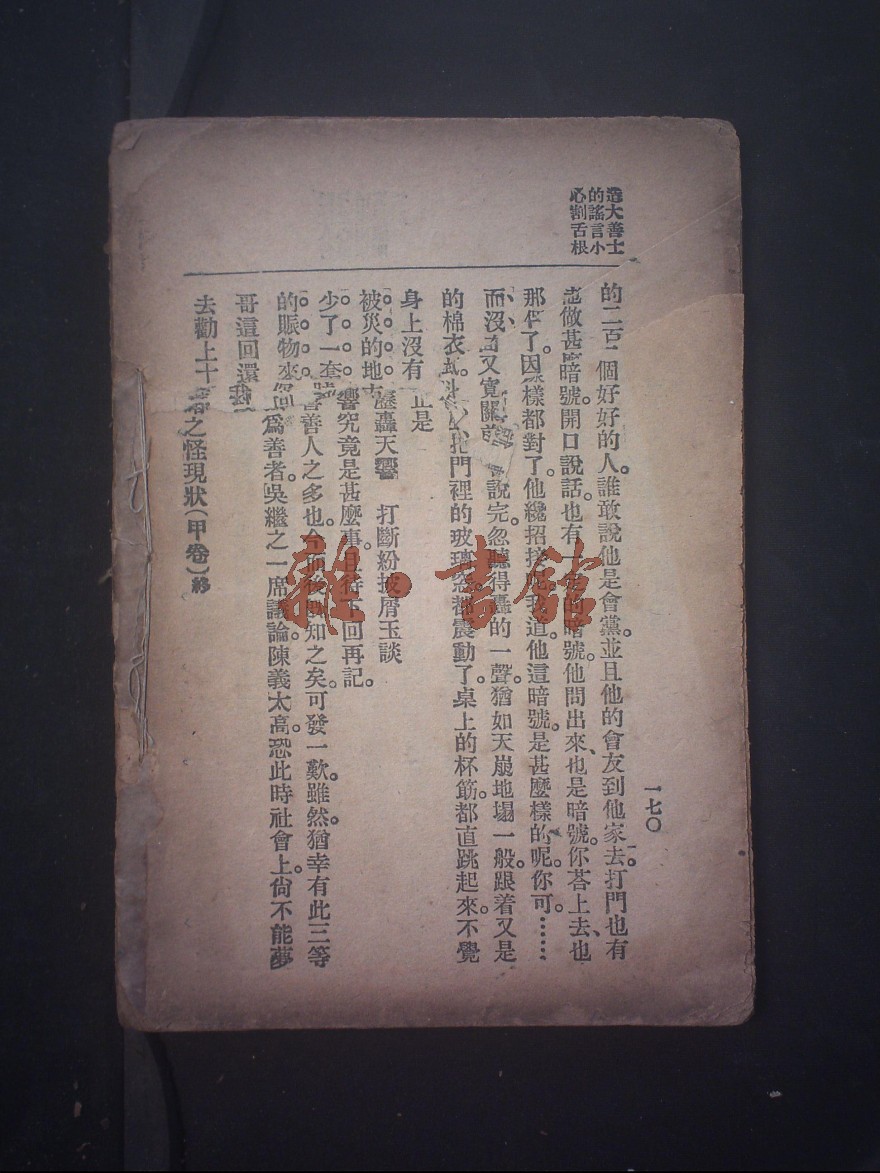 造大善士
的謠言小
心割舌根
的二百個好好的人。誰敢說他是會黨。並且他的會友到他家去打門也有
做甚暗號。開口說話。也有一定的暗號。他問出來、也是暗號。你荅上去、也
那了。因樣都對了。他纔招接呢我道他這暗號。是甚麼樣的呢。你可……
而沒又寬說完。忽聽得轟的一聲。猶如天崩地塌一般。跟着又是
的棉衣門裡的玻璃窓都震動了。桌上的杯筯。都直跳起來。不覺
身上沒有正是
被災的地轟天響 打斷紛披屑玉談
少了一套響究竟是甚麼事。且待下回再記。
的賑物來善人之多也。今而後知之矣。可發一歎。雖然。猶幸有此三等
哥這回還爲善者。吳繼之一席議論。陳義太高。恐此時社會上。尙不能夢
去勸上十之怪現狀（甲卷）終
一七〇
雜·書館